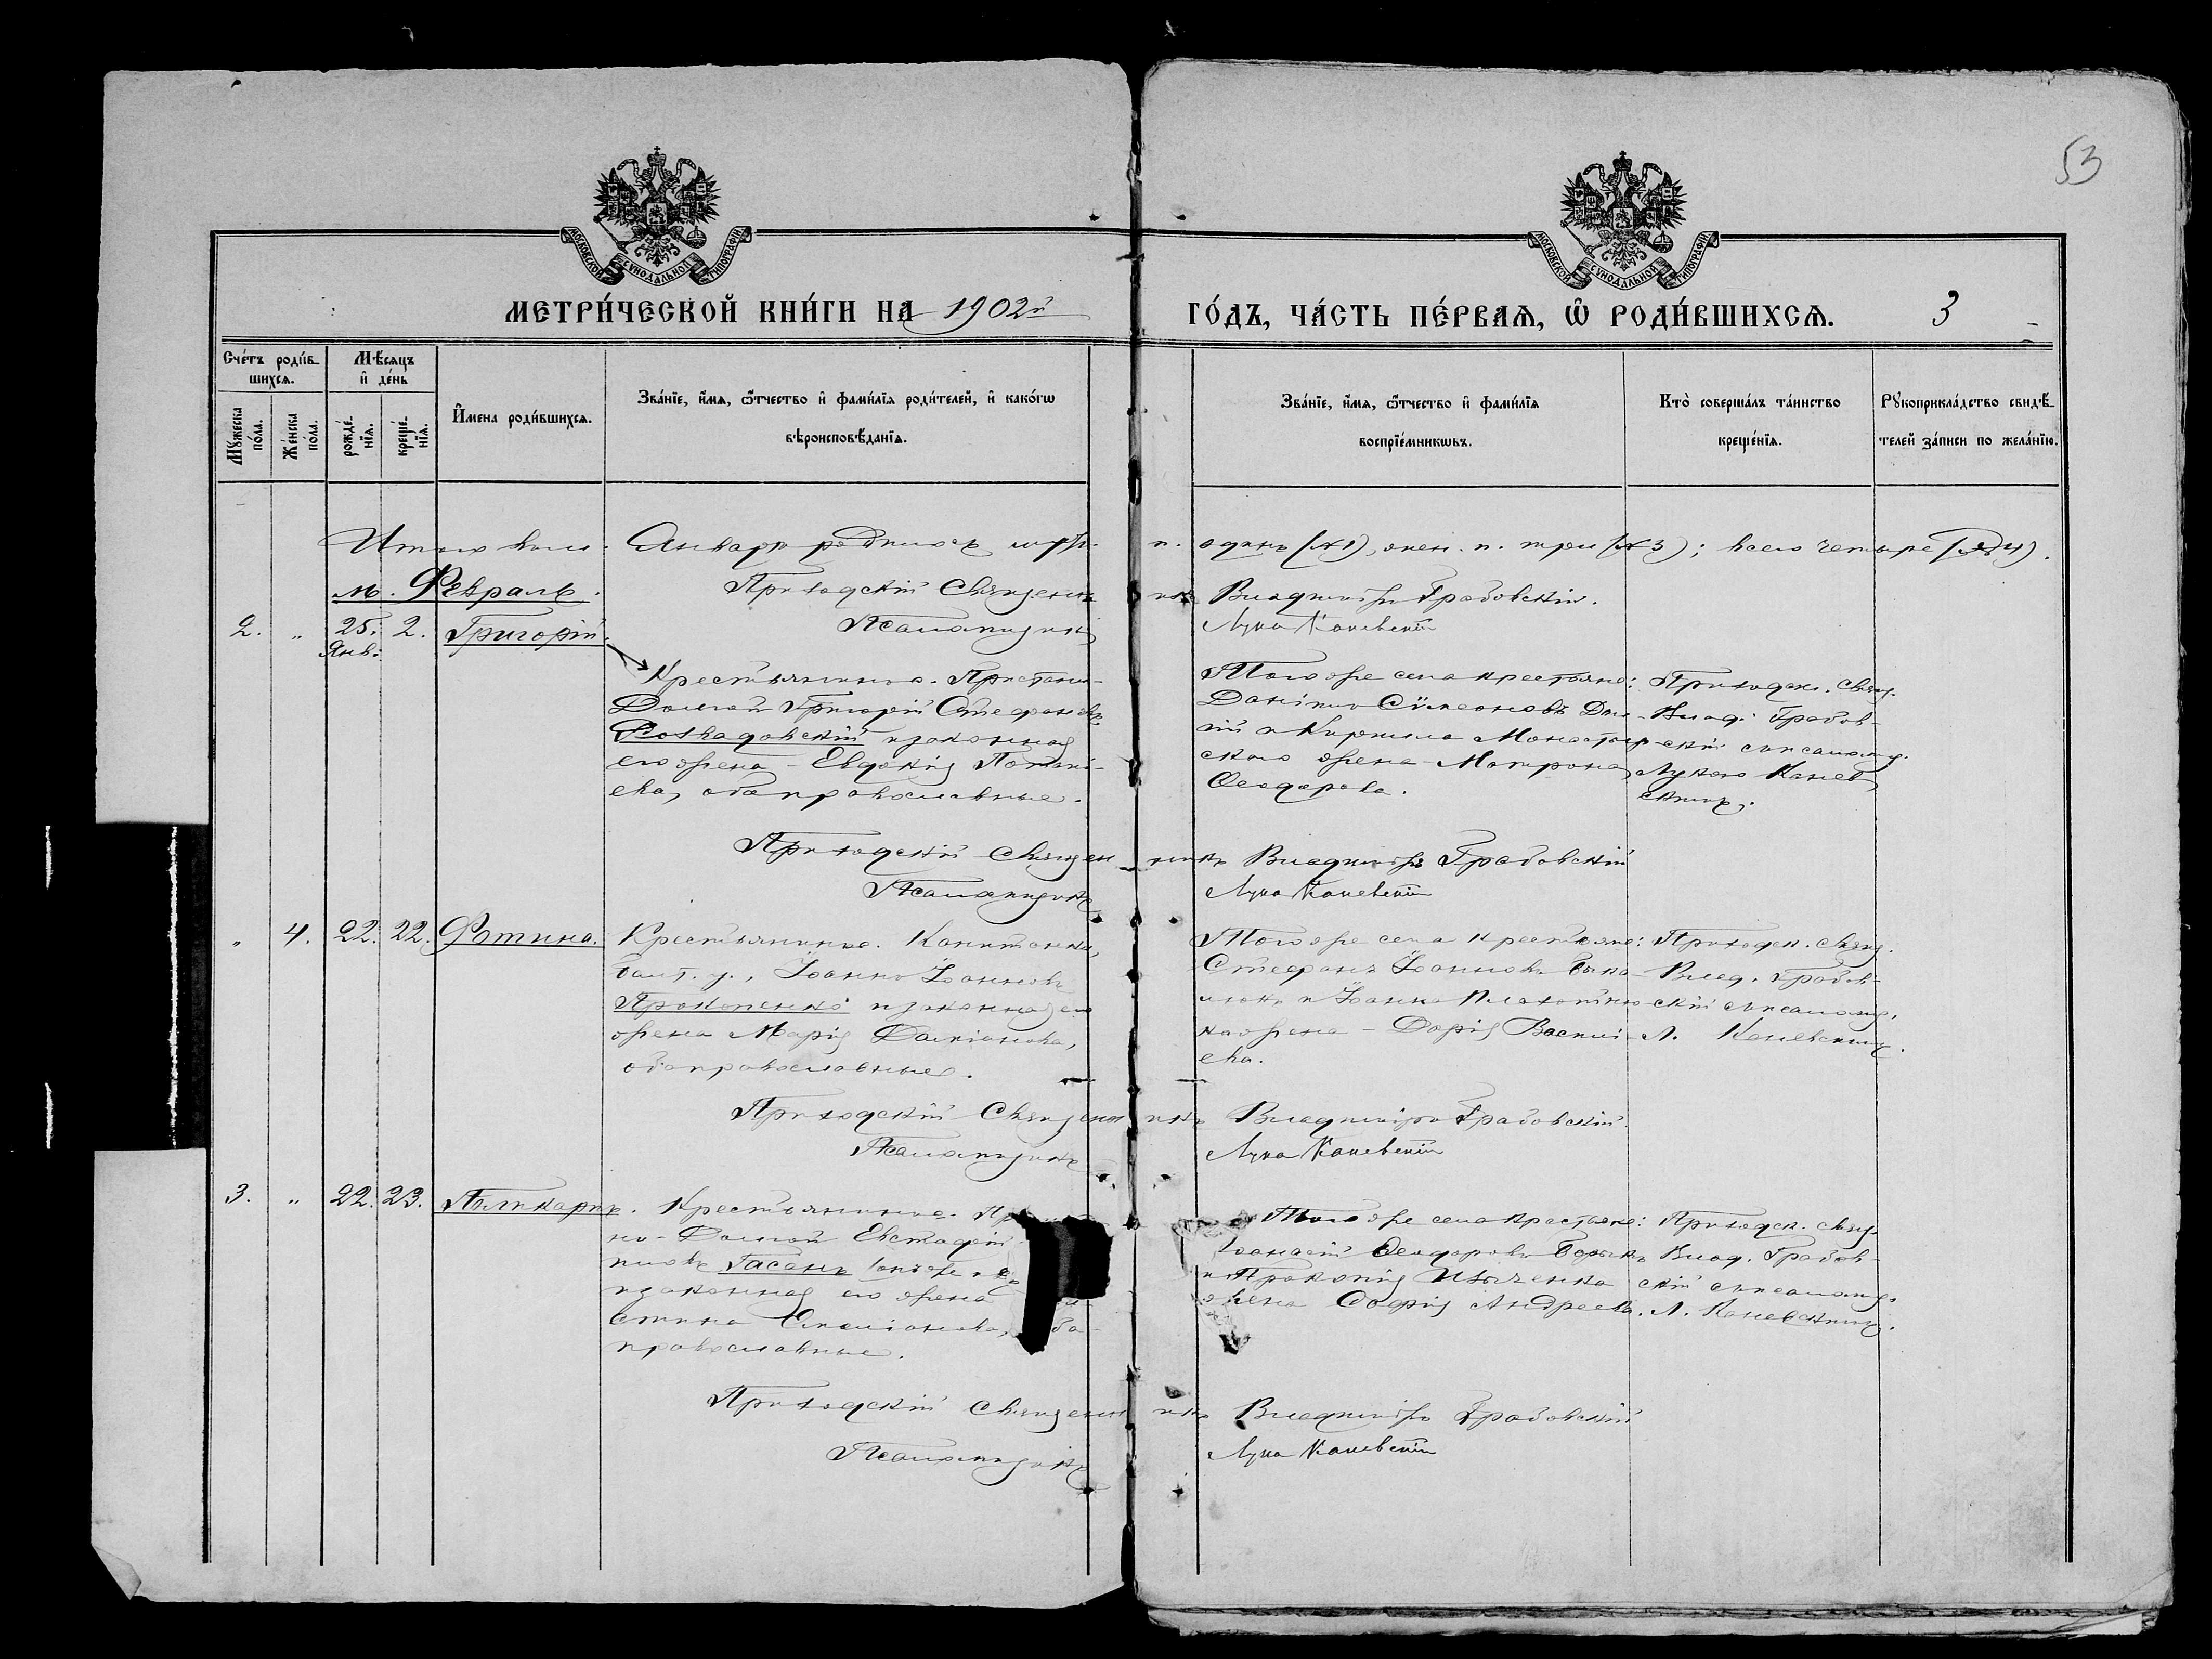 53
МОСКОВСКОЙ СѴНОДАЛЬНОЙ ТИПОГРАФІИ
МОСКОВСКОЙ СѴНОДАЛЬНОЙ ТИПОГРАФІИ
МЕТРИ́ЧЕСКОЙ КНИ́ГИ НА 1902й ГО́ДЪ, ЧА́СТЬ ПЕ́РВАѦ, Ѽ РОДИ́ВШИХСѦ. 3
Сче́тъ роди́в-
шихсѧ.
Мѣ́сѧцъ
и҆ де́нь
Мꙋ́жеска по́ла.
Же́нска по́ла.
рожде́-нїѧ.
креще́-нїѧ.
И҆мена роди́вшихсѧ.
Зва́нїе, и҆́мѧ, ѻ҆́тчество и҆ фами́лїѧ роди́телей, и҆ како́гѡ
вѣроисповѣ́данїѧ.
Зва́нїе, и҆́мѧ, ѻ҆́тчество и҆ фами́лїѧ
воспрїе́мникѡвъ.
Кто̀ соверша́лъ та́инство
креще́нїѧ.
Рꙋкоприкла́дство свидѣ́-
телей за́писи по жела́нїю.
Итого Январѣ родилось муж. п. одинъ (№1), жен. п. три (№3); всего четыре (№4).
м. Февраль.
Приходскій Священникъ Владиміръ Грабовскій.
Псаломщикъ Лука Каневскій
2. " 25. Янв: 2. Григорій.
Крестьянинъ с. Пристани-
Долгой Григорій Стефановъ
Розвадовскій и законная
его жена - Евдокія
ева, оба православные.
Того же села крестьяне:
Даніилъ Сѵмеоновъ Дол-
гій и Кирилла Монастыр-
скаго жена - Матрона
Ѳеодорова.
Приходск. Свящ.
Влад. Грабов-
скій съ псаломщ.
Лукою Канев
скимъ.
Приходскій Священникъ Владиміръ Грабовскій
Псаломщикъ Лука Каневскій
" 4. 22. 22. Фотина.
Крестьянинъ с. Капитанки,
Балт. у., Іоаннъ Іоанновъ
Прокопенко и законная его
жена Марія Даміанова,
оба православные.
Того же села крестьяне:
Стефанъ Іоанновъ
и Іоанна
ка жена - Дарія Васили-
ева.
Приходск. Свящ.
Влад. Грабов-
скій съ псаломщ.
Л. Каневскимъ.
Приходскій Священникъ Владиміръ Грабовскій.
Псаломщикъ Лука Каневскій
3. " 22. 23. Поликарпъ.
Крестьянинъ с.
но-Долгой Евстафій
Гасанъ
и законная его жена
стина Емиліанова,
православные.
Того же села крестьяне:
Ѳеодоровъ
и Прокопія
жена Софія Андреева.
Приходск. Свящ.
Влад. Грабов-
скій съ псаломщ.
Л. Каневскимъ.
Приходскій Священникъ Владиміръ Грабовскій
Псаломщикъ Лука Каневскій